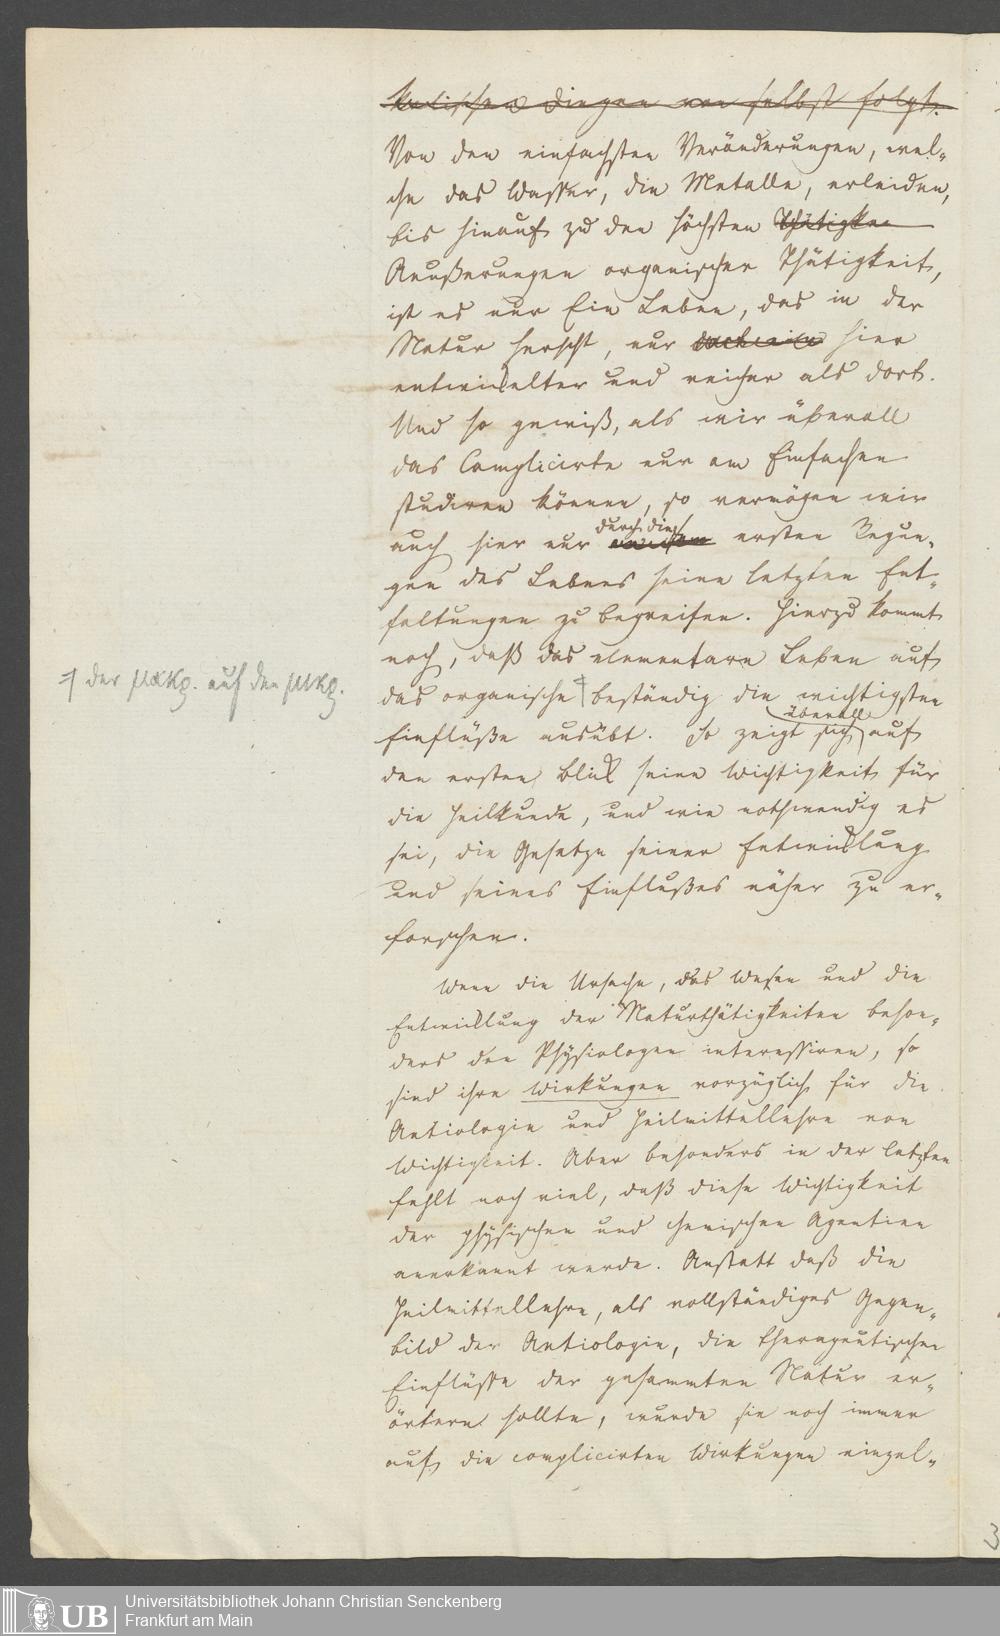 kalischen Dingen von selbst folgt.
Von den einfachsten Veränderungen, wel-
che das Wasser, die Metalle, erleiden,
bis hinauf zu den höchsten Thätigke
Aeußerungen organischer Thätigkeit,
ist es nur Ein Leben, das in der
Natur herscht, nur hier
entwickelter und reicher als dort.
Und so gewiß, als wir überall
das Complicirte nur am Einfachen
studiren können, so vermögen wir
durch die
auch hier nur ersten Regun-
gen des Lebens seine letzten Ent-
faltungen zu begreifen. Hierzu kommt
noch, daß das elementare Leben auf
der μακρ. auf den μικρ.
das organische beständig die wichtigsten
überall
Einflüße ausübt. So zeigt sich auf
den ersten Blick seine Wichtigkeit für
die Heilkunde, und wie nothwendig es
sei, die Gesetze seiner Entwicklung
und seines Einflußes näher zu er-
forschen.
Wenn die Ursache, das Wesen und die
Entwicklung der Naturthätigkeiten beson-
ders den Physiologen interessiren, so
sind ihre Wirkungen vorzüglich für die
Aetiologie und Heilmittellehre von
Wichtigkeit. Aber besonders in der letzten
fehlt noch viel, daß diese Wichtigkeit
der physischen und chemischen Agentien
anerkannt werde. Anstatt daß die
Heilmittellehre, als vollständiges Gegen-
bild der Aetiologie, die therapeutischen
Einflüsse der gesammten Natur er-
örtern sollte, wurde sie noch immer
auf die complicirten Wirkungen einzel-
3
UB
Universitätsbibliothek Johann Christian Senckenberg
Frankfurt am Main